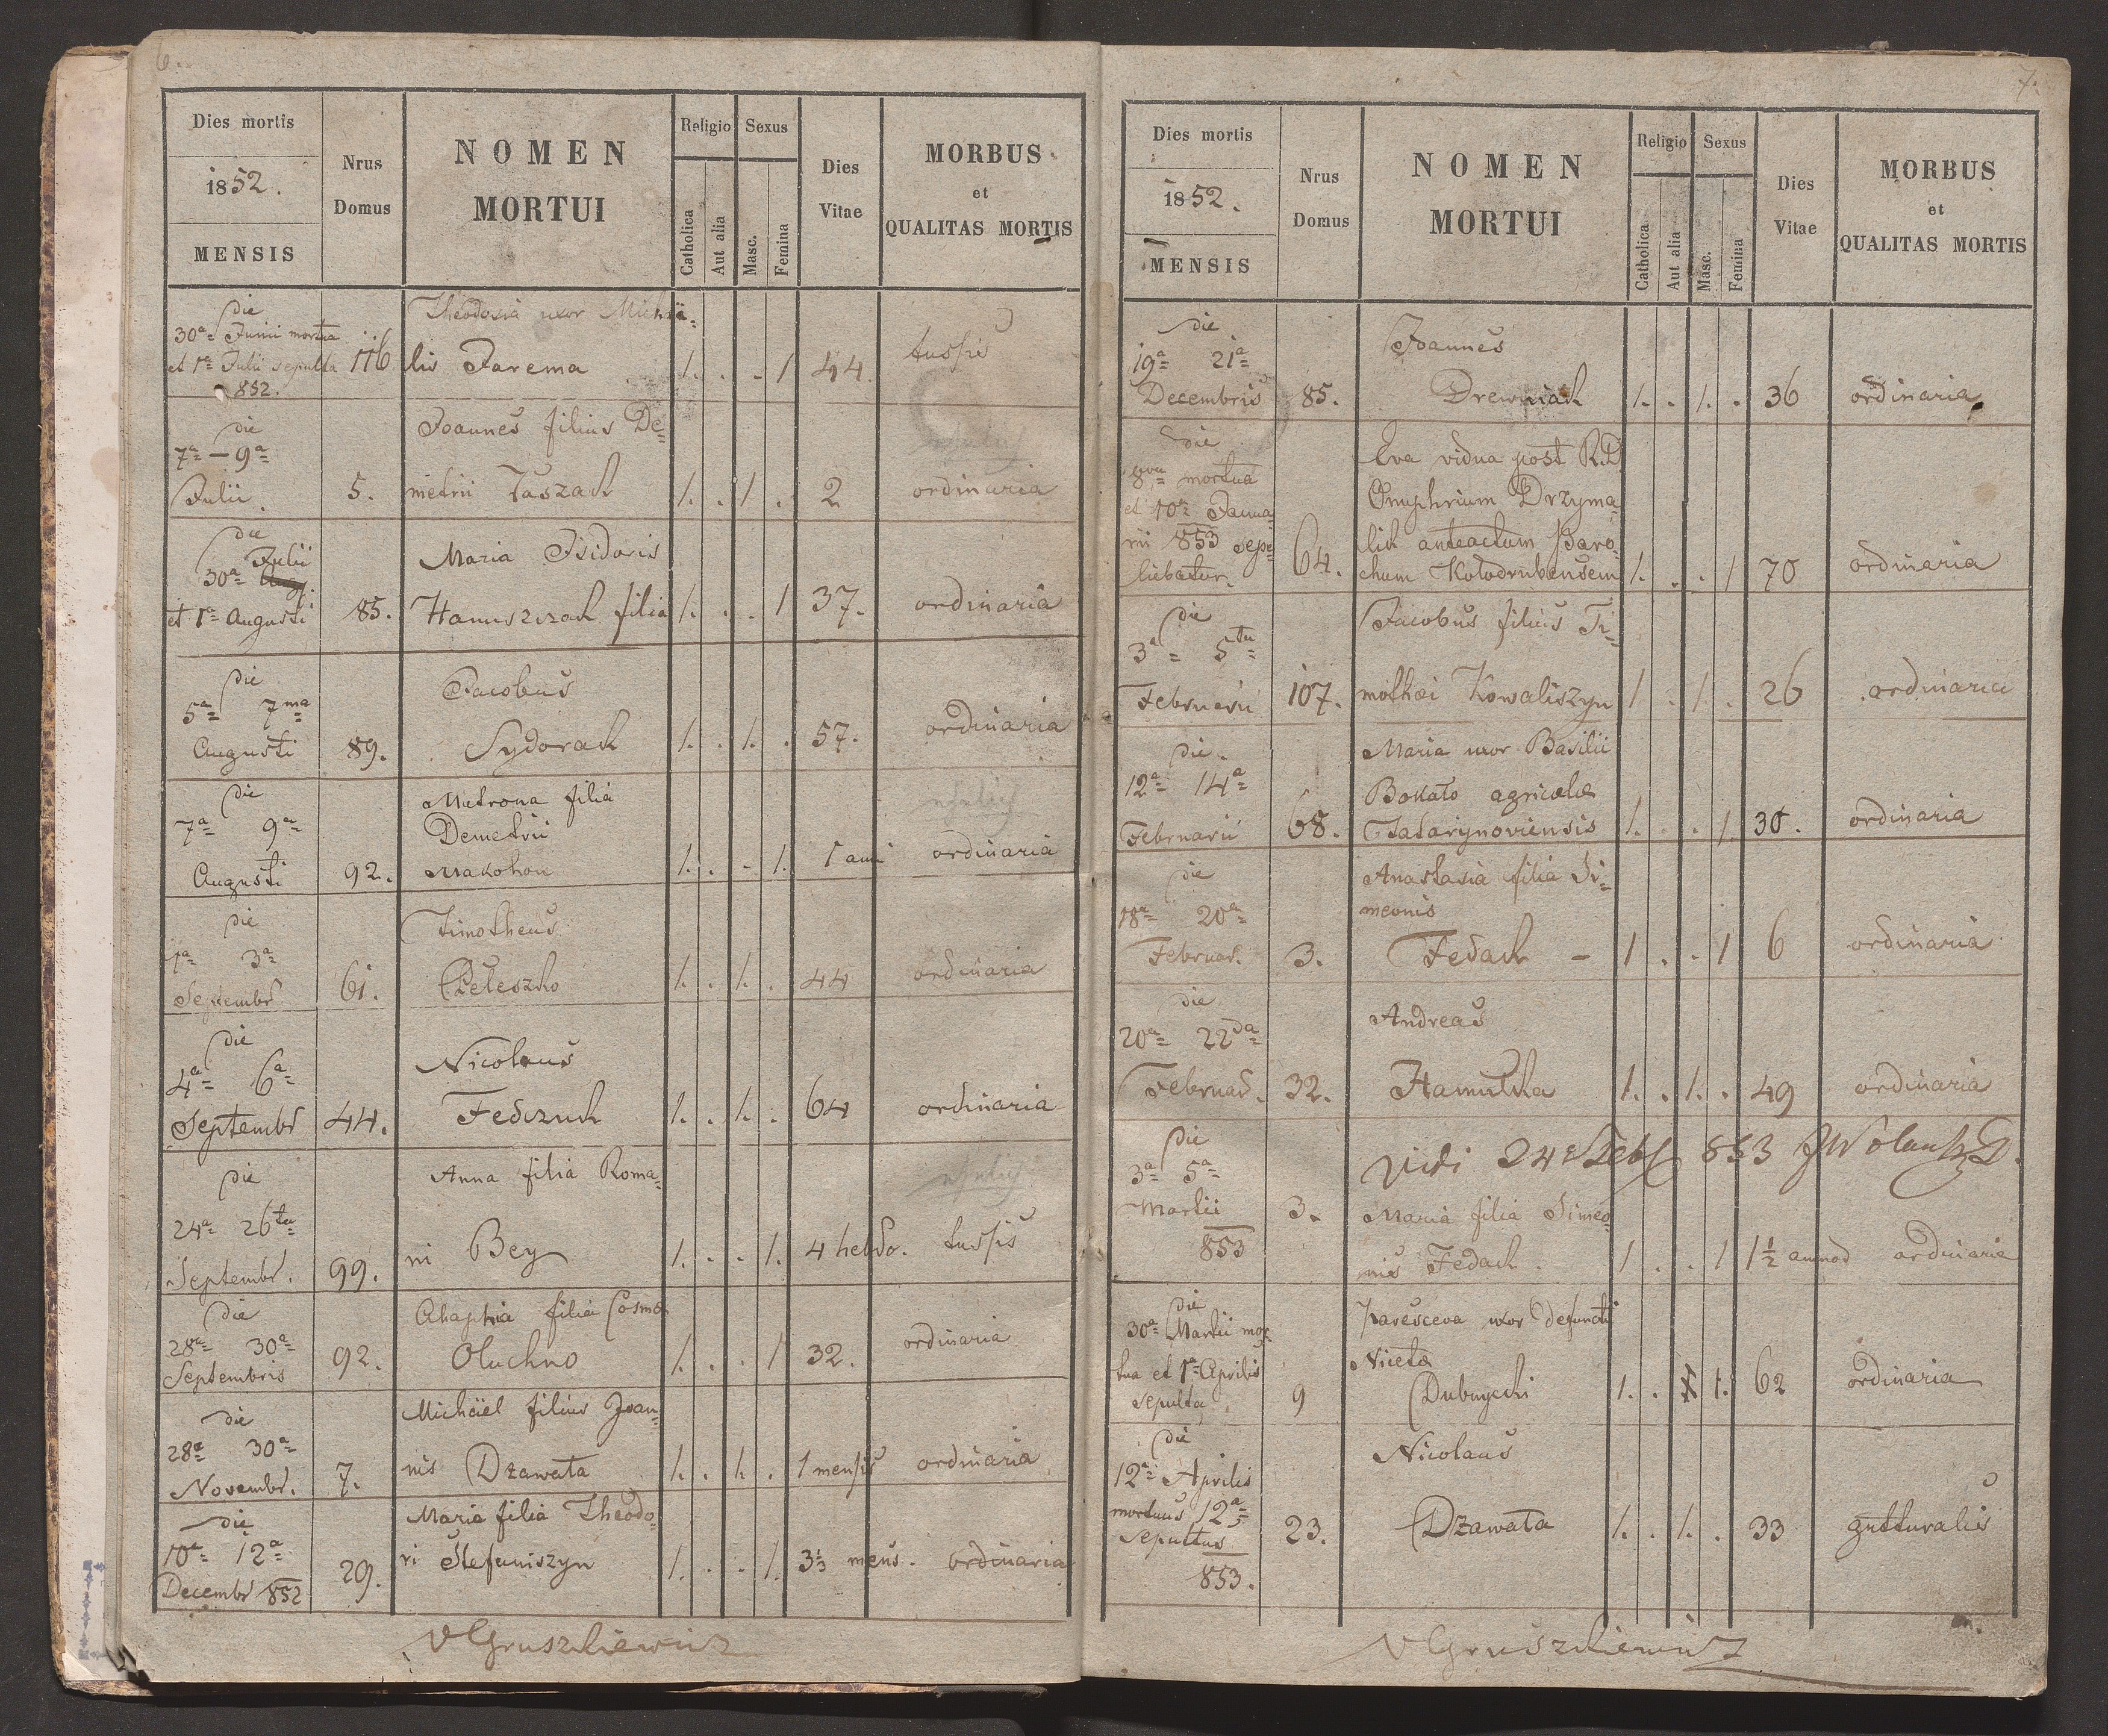 6.
Dies mortis
1852.
MENSIS
Nrus
Domus
NOMEN
MORTUI
Religio
Catholica
Aut alia
Sexus
Masc.
Femina
Dies
Vitae
MORBUS
et
QUALITAS MORTIS
die
30ª Junii mortua
et 1ª Julii sepulta
852.
116
Theodosia uxor Michaë-
lis Jarema
1. . - 1
44.
tussis
die
7ª — 9ª
Julii.
5.
Joannes filius De-
metrii Taszach
1. . 1 .
2
ordinaria
die
Julii
30ª Aug.
et 1ª Augusti
85.
Maria Isidoris
Hanuszczach filia
1. . - 1
37.
ordinaria
die
5ª 7ma
Augusti
89.
Jacobus
Sydorach
1. . 1. .
57.
ordinaria
die
7ª 9ª
Augusti
92.
Matrona filia
Demetrii
Makohon
1. . - 1.
1 anni
ordinaria
die
1ª 3ª
Septembr
61.
Timotheus
Peleszko
1. . 1. .
44
ordinaria
die
4ª 6ª
Septembr
44.
Nicolaus
Fedczuch
1. . 1. .
64
ordinaria
die
24ª 26ta
Septembr.
99.
Anna filia Roma-
ni Bey
1. . - 1.
4 hebdo.
tussis
die
28ª 30ª
Septembris
92.
Ahaphia filia Cosmo
Oluchno
1. . . 1
32.
ordinaria
die
28ª 30ª
Novembr.
7.
Michäel filius Joan-
nis Dzawata
1. . 1. .
1 mensis
ordinaria
die
10ª 12ª
Decembr 852
29.
Maria filia Theodo-
ri Stefaniszyn
1. . . 1.
3⅓ mens.
ordinaria
VGruszkiewicz
7.
Dies mortis
1852.
MENSIS
Nrus
Domus
NOMEN
MORTUI
Religio
Catholica
Aut alia
Sexus
Masc.
Femina
Dies
Vitae
MORBUS
et
QUALITAS MORTIS
die
19ª 21ª
Decembris
85.
Joannes
Drewniach
1. . 1. .
36
ordinaria
die
8va mortua
et 10ª Janua-
rii 853 sepe-
liebatur.
64.
Eva vidua post RD
Onuphrium Drzyma-
lik anteactum Paro-
chum Kolodrubensem
1. . . 1
70
ordinaria
die
3ª 5ta
Februarii
107.
Jacobus filius Ti-
mothei Kowaliszyn
1 . 1 .
26
ordinaria
die
12ª 14ª
Februarii
68.
Maria uxor Basilii
Bokato agricolae
Tatarynoviensis
1. . . 1.
30.
ordinaria
die
18ª 20ª
Februar.
3.
Anastasia filia Si-
meonis
Fedach -
1 . . 1
6
ordinaria
die
20ª 22da
Februar.
32.
Andreas
Hamulka
1. . 1. .
49
ordinaria
Vidi 24 Feb 853
die
3ª 5ª
Martii
853
3.
Maria filia Simeo-
nis Fedach.
1 . . 1
1½ annod
ordinaria
die
30ª Martii mor-
tua et 1ª Aprilis
sepulta
9
Paresceva uxor defuncti
Niceta
Dubnycki
1. . 1 1.
62
ordinaria
die
12ª Aprilis
mortuus 12ª
sepultus
853.
23.
Nicolaus
Dzawata
1. . 1. .
33
gutturalis
VGruszkiewicz